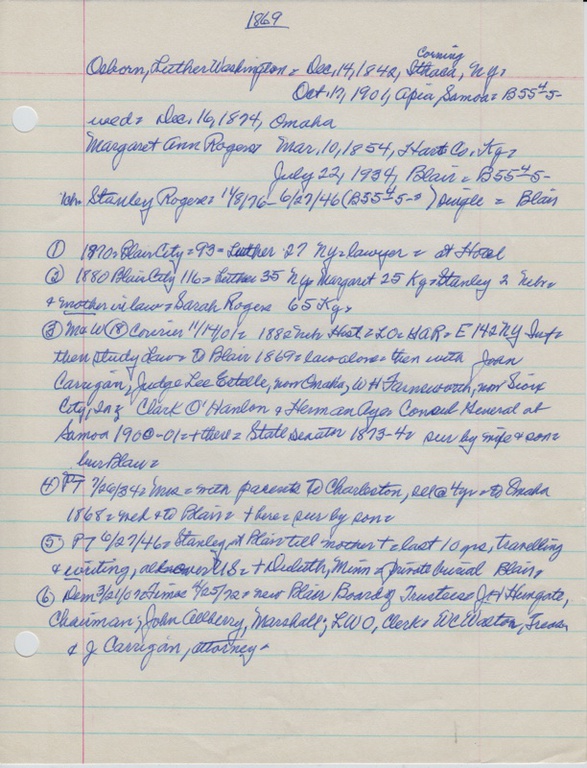 1869
Corning
Osborn, Luther Washington = Dec, 14, 1842, Ithaca, Ny=
Oct. 17, 1901, Apia, Samoa = B55
wed = Dec, 16, 1874, Omaha
Margaret Ann Rogers Mar, 10, 1854, Hart Co, Ky=
July 22, 1934, Blair = B55
Stanley Rogers = 11/8/76 - 6/27/46 (B55) single = Blair
① 1870 = Blair City = 93 = Luther 27 Ny = lawyer = at Hotel
② 1880 Blair City 116 = Luther 35 Ny, Margaret 25 Ky = Stanley 2 Nebr =
& mother in law = Sarah Rogers 65 Ky,
③ M & W ⑱ Courier 11/14/01 = 1882 Nebr Hist = = E 142 NY Inf =
then study Law = to Blair 1869 = law alone = then with John
Carrigan, Judge Lee Estelle, now Omaha, W H Farnsworth, now Sioux
City, Clark O'Hanlon & Herman Aye Consul General at
Samoa 1900-01 = + there = State Senator 1873-4 = sur by wife & son =
bur Blair =
④ PT 7/26/34 = Mrs = with parents to Charleston, @ 4 yrs = to Omaha
1868 = wed & to Blair = + here = sur by son =
⑤ PT 6/27/46 = Stanley, at Blair till mother + = last 10 yrs, travelling
& writing, all over US = + Duluth, Minn = private burial Blair,
⑥ Dem 3/21/07 = Times 4/25/72 = new Blair Board of Trustees J H Hungate,
Chairman, John Allberry, Marshall, LWO, Clerk = WC Walton, Treas,
& J Carrigan, attorney =